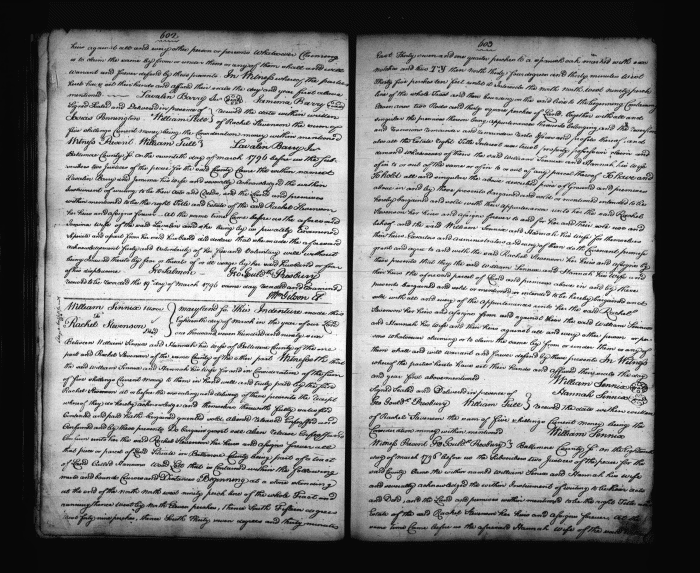 602
heirs against all and every other person or persons Whatsoever Claiming
or to claim the same by from or under them or any of them shall and will
warrant and forever defend by these presents In Witness whereof the parties
have hereunto set their hands and affixed their seals the day and year first above
mentioned Lavalin Barry Jur Jemima Barry
Signed Sealed and Delivered in presence of received the date within written
William Tull of Rachel Stevenson the sum of
five shillings Current money being the Consideration money within mentioned
Witness Present William Tull Lavalin Barry Jur
Baltimore County Sc on the day of March 1796 before us the
two Justices of the peace for the said County Came the within named
Lavalin Barry and Jemima his wife and severally acknowledged the within
Instrument of writing to be their act and Deed, and the Land and premises
within mentioned to be the right Title and Estate of the said Rachel Stevenson
her heirs and assigns forever at the same time Came before us the aforesaid
Jemima wife of the said Lavalin and she being by us privately Examined
Apart and out of her husband's declares that she made the aforesaid
acknowledgment freely and voluntarily without
being induced thereto by fear or threats of ill usage by her said Husband or fear
of his displeasure Geo Gouldh Presbury
received to be recorded the 19th day of March 1796 same day recorded and Examined
Wm Gibson Clk
William Sinnix &amp; uxor
to
Rachel Stevenson
Maryland Sc This Indenture made this
day of March in the year of our Lord
one thousand seven hundred and ninety six
Between William Sinnix and Hannah his wife of Baltimore County of the one
part and Rachel Stevenson of the same County of the other part Witnesseth that
the said William Sinnix and Hannah his wife for and in Consideration of the sum
of five shillings Current money to them in hand well and truly paid by the said
Rachel Stevenson at or before the ensealing and delivery of these presents the receipt
whereof they do hereby acknowledge and themselves therewith fully satisfied
Contented and paid hath bargained granted sold aliened released Enfeoffed and
Confirmed and by these presents Do bargain grant sell alien release Enfeoff and
Confirm unto the said Rachel Stevenson her heirs and assigns forever all
that piece or parcel of Land Situate in Baltimore County being part of a tract
of Land Called that is Contained within the following
metes and bounds Courses and Distances Beginning at a stone standing
at the end of the North North west ninety perch line of the whole Tract and
running thence west by North Eleven perches, thence South Fifteen degrees
East forty nine perches, thence South Thirty seven degrees and thirty minutes
603
East Thirty seven and one quarter perches to a Spanish oak marked with six
notches and thence North thirty four degrees and thirty minutes West
Thirty five perches ten feet until it intersects the North North west ninety perch
line of the whole tract and then bounding on the said line to the beginning Containing
two Rods and thirty eight perches of Land Together with all and
singular the premises thereon being appurtenances thereto belonging and the reversion
and reversions remainder and remainders rents Issues and profits thereof and
all the Estate right Title Interest use trust property possession claim and
demand whatsoever of them the said William Sinnix and Hannah his wife
of in or out of the same or in to or out of any parcel thereof To have and
To hold all and singular the said described piece of Ground and premises
above in and by these presents bargained and sold or mentioned intended to be
hereby bargained and sold with their appurtenances unto her the said Rachel
Stevenson her heirs and assigns forever to and for her and their sole use and
behoof and the said William Sinnix and Hannah his wife for themselves
their heirs Executors and administrators and every of them do Covenant promise
grant and agree to and with the said Rachel Stevenson her heirs and assigns by
these presents that they the said William Sinnix and Hannah his wife and
their heirs the aforesaid parcel of Land and premises above in and by these
presents bargained and sold or mentioned or intended to be hereby bargained and
sold with all and every of the appurtenances unto her the said Rachel
Stevenson her heirs and assigns from and against them the said William Sinnix
and Hannah his wife and their heirs against all and every other person or per
sons whatsoever claiming or to claim the same by from or under them or any of
them shall and will warrant and forever defend by these presents In Witness
whereof the parties hereto have set their Hands and affixed their seals the day
and year first above mentioned William Sinnix
Signed Sealed and Delivered in presence of Hannah Sinnix
Geo Gouldh Presbury William Tull received the date within written
of Rachel Stevenson the sum of five shillings Current money being the
Consideration money within mentioned William Sinnix
Witness Present Geo Gouldh Presbury Baltimore County Sc on the
day of March 1796 before us the Subscribers two Justices of the peace for the
said County Came the within named William Sinnix and Hannah his wife
and severally acknowledged the within Instrument of writing to be their act
and Deed and the Land and premises within mentioned to be the right Title and
Estate of the said Rachel Stevenson her heirs and assigns forever at the
same time Came before us the aforesaid Hannah wife of the said